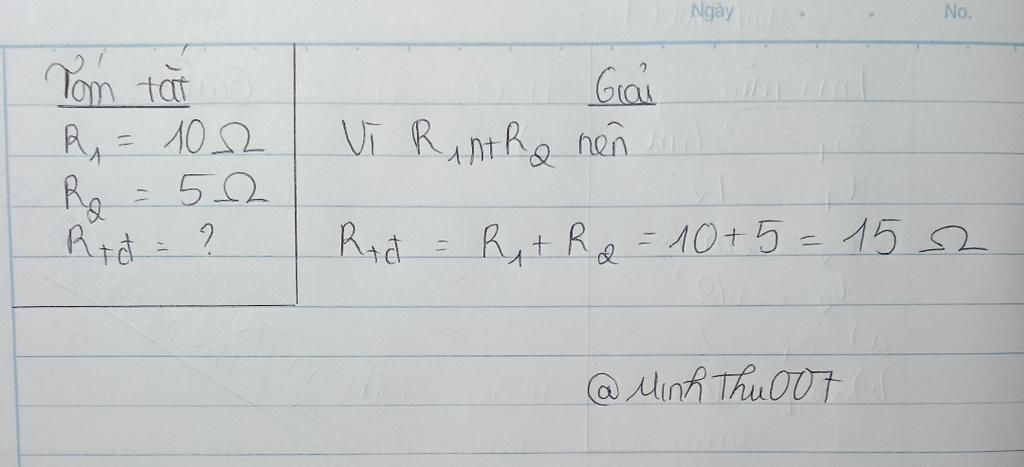 Ngày No.
Tóm tắt
R1 = 10 Ω
R2 = 5 Ω
Rtđ = ?
Giải
Vì R1 nt R2 nên
Rtđ = R1 + R2 = 10 + 5 = 15 Ω
@MinhThu007